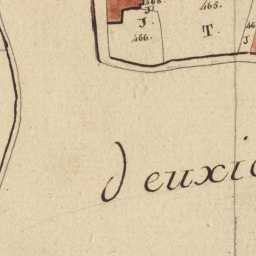 465.
J.
J.
466.
T.
J
Deuxi